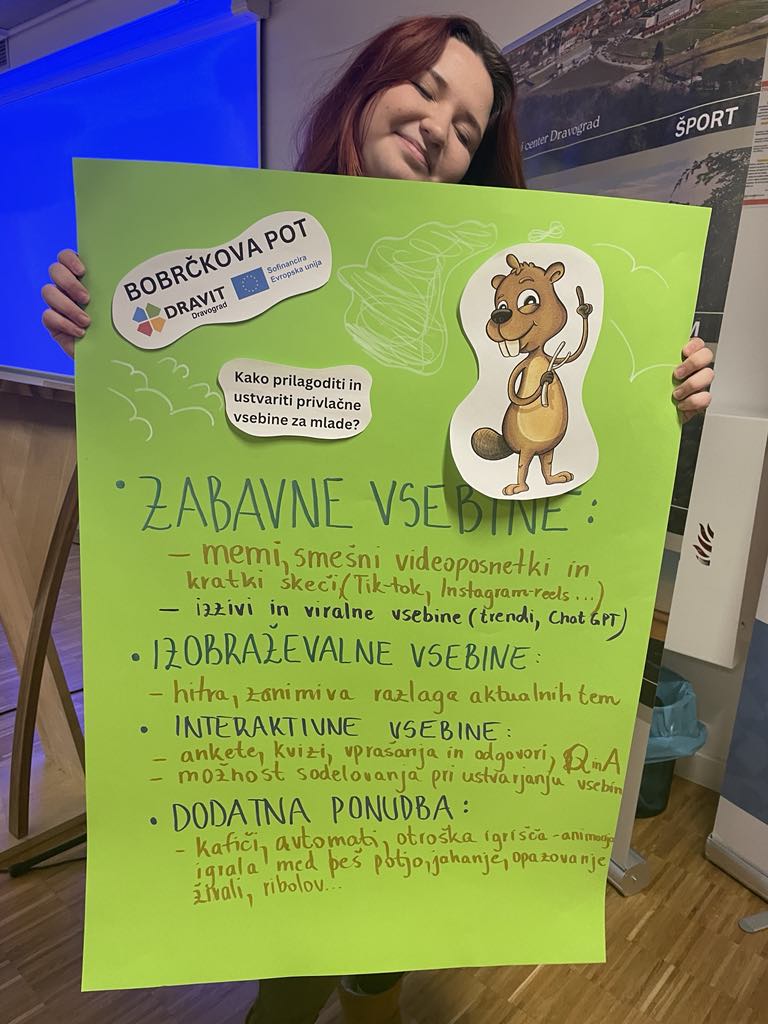 i center Dravograd
ŠPORT
BOBRČKOVA POT
DRAVIT
Dravograd
Sofinancira
Evropska unija
Kako prilagoditi in
ustvariti privlačne
vsebine za mlade?
• ZABAVNE VSEBINE:
– memi, smešni videoposnetki in
kratki skeči (Tik-tok, Instagram-reels...)
– izzivi in viralne vsebine (trendi, Chat GPT)
• IZOBRAŽEVALNE VSEBINE:
– hitra, zanimiva razlaga aktualnih tem
• INTERAKTIVNE VSEBINE:
– ankete, kvizi, vprašanja in odgovori, QinA
– možnost sodelovanja pri ustvarjanju vsebin
• DODATNA PONUDBA:
– kafiči, avtomati, otroška igrišča - animacije
igrala med peš potjo, jahanje, opazovanje
živali, ribolov...